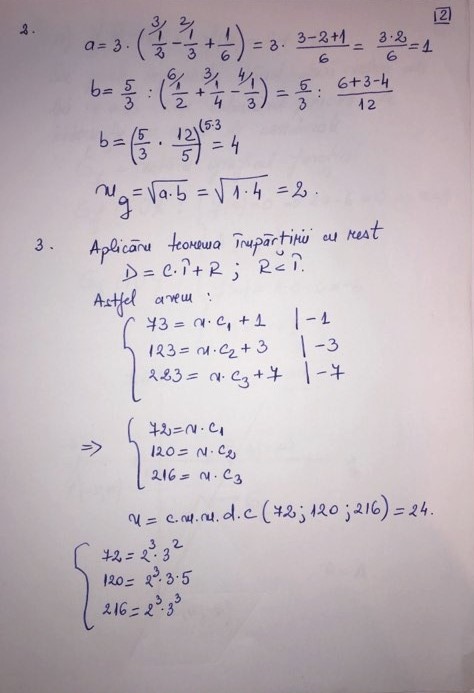 2
2.
a = 3 · (³⁄1/2 − ²⁄1/3 + 1/6) = 3 · (3−2+1)/6 = (3·2)/6 = 1
b = 5/3 : (⁶⁄1/2 + ³⁄1/4 − ⁴⁄1/3) = 5/3 : (6+3−4)/12
b = (5/3 · 12/5)^(5·3 = 4
m_g = √a·b = √1·4 = 2.
3. Aplicăm teorema împărțirii cu rest
D = C·Î + R ; R < Î.
Astfel avem :
73 = n·c₁ + 1 | −1
123 = n·c₂ + 3 | −3
223 = n·c₃ + 7 | −7
⇒ 72 = n·c₁
120 = n·c₂
216 = n·c₃
n = c.m.m.d.c (72 ; 120 ; 216) = 24.
72 = 2³·3²
120 = 2³·3·5
216 = 2³·3³